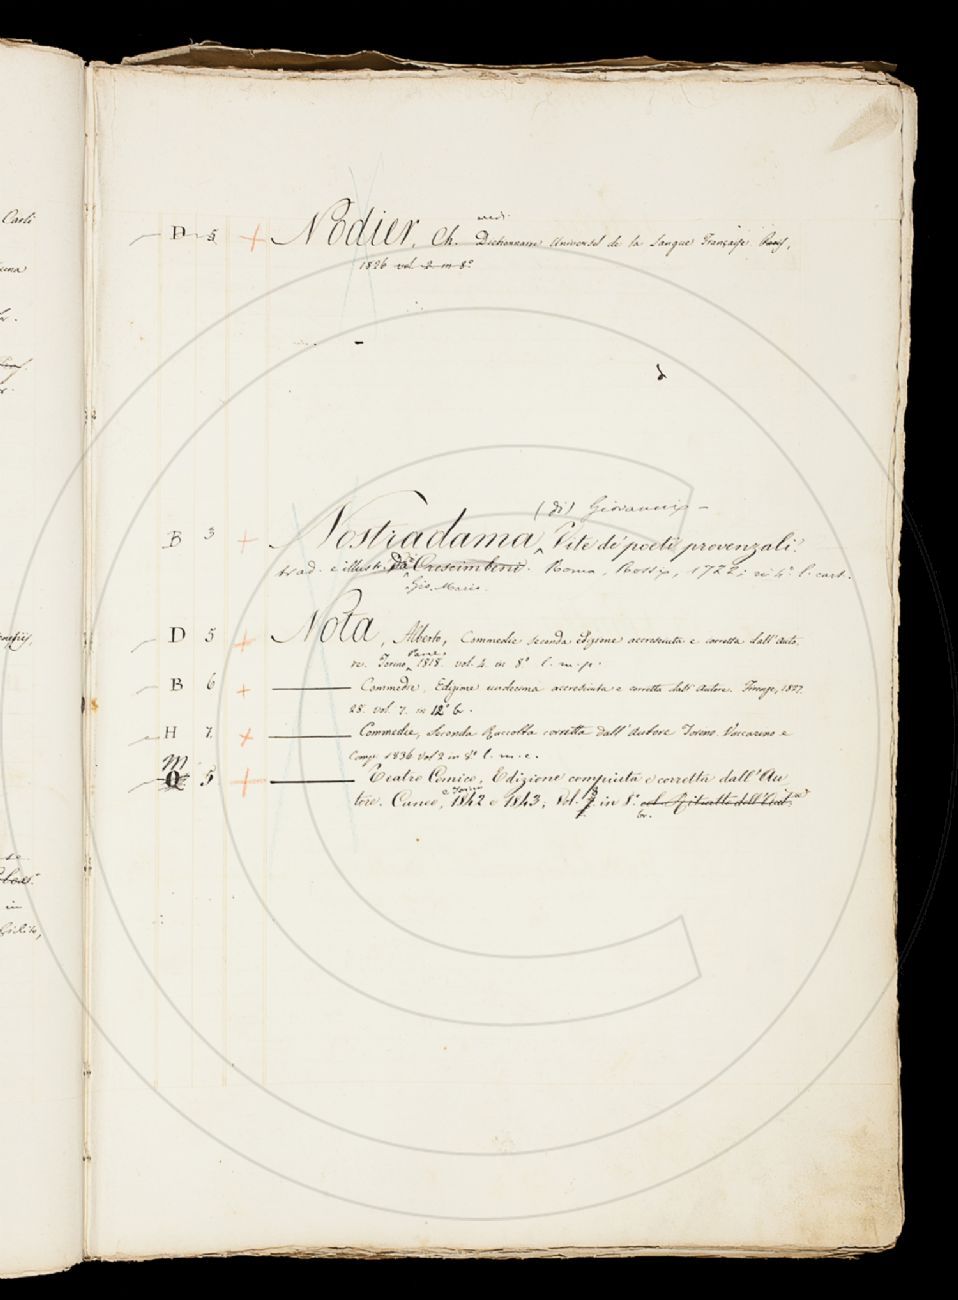 Carli
D 5 + Nodier, Ch. Dictionnaire Universel de la Langue Française, Paris,
1826 vol. 2 in 8º
(di) Giovanni
B 3 + Nostradama, Vite de' poeti provenzali.
trad. e illustr. Da Crescimbeni. Roma, Rossi, 1722; in 4º. l. cart.
Gio. Mario.
D 5 + Nota, Alberto, Commedie seconda edizione accresciuta e corretta dall'Auto
re. Torino, Pane, 1818. vol. 4. in 8º l. m. p.
B 6 + Commedie, Edizione undecima accresciuta e corretta dall'Autore. Firenze, 1827.
28. vol. 7. in 12º br.
H 7. + Commedie, Seconda Raccolta corretta dall'Autore Torino. Vaccarino e
Comp. 1836 vol 2 in 8º l. m. e.
M
5 + Teatro Comico, Edizione compiuta e corretta dall'Au
tore. Cuneo, e Torino 1842 e 1843, Vol. 8 in 8º. col Ritratto dell'Aut.
br.